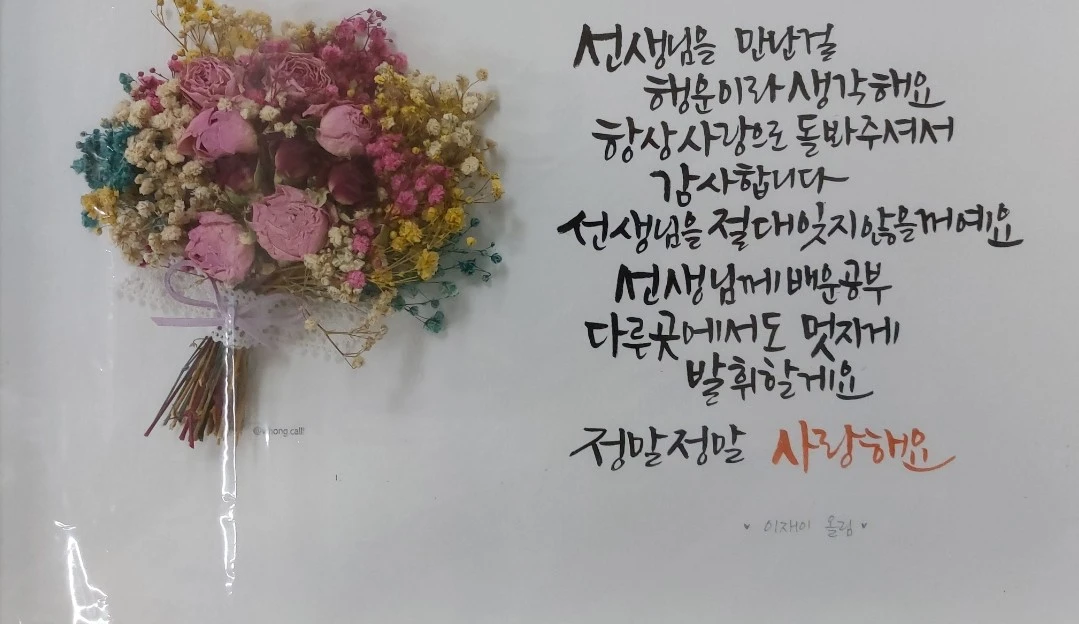 선생님을 만난걸
행운이라 생각해요
항상 사랑으로 돌봐주셔서
감사합니다
선생님을 절대잊지않을꺼예요
선생님께 배운공부
다른곳에서도 멋지게
발휘할게요
정말정말 사랑해요
♥ 이재이 올림 ♥